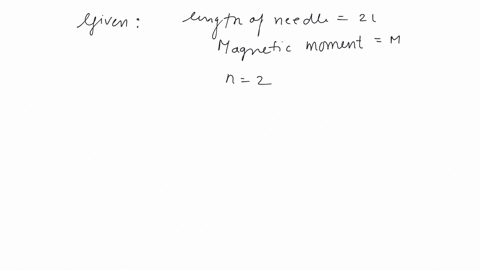 Given : length of needle = 2l
Magnetic moment = M
n = 2